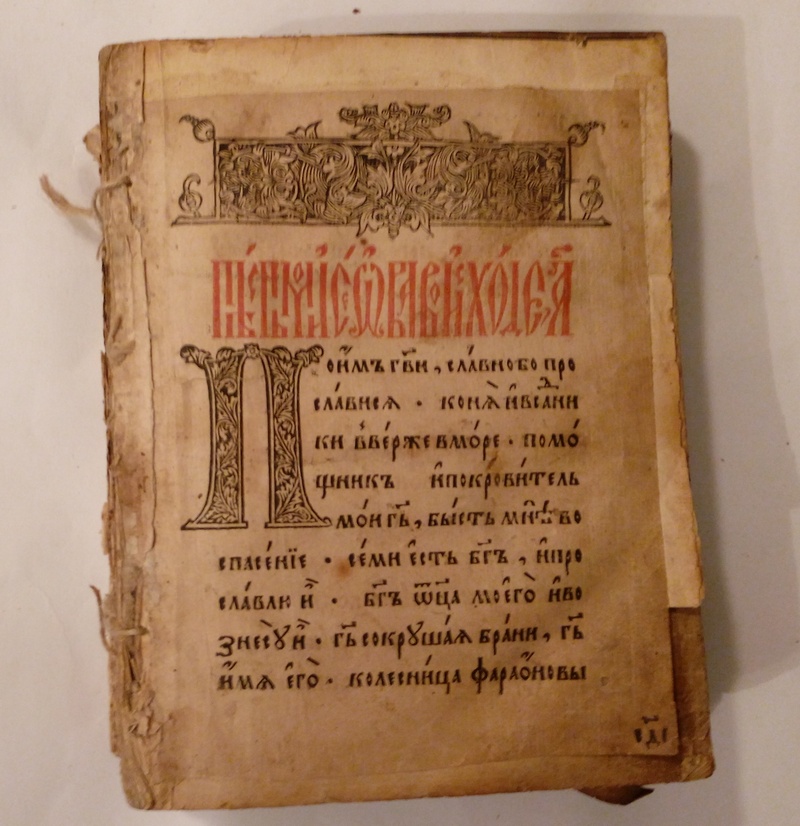 Пѣ́снь Моисе́ѡва
Пои҆́мъ гв҃и, сла́вно бо про
сла́вися · коня̀ и҆ вса́дни
ки вве́рже в мо́ре · помо́
щникъ и҆ покрови́тель
мо́и гь҃, бы́сть мнѣ̀ во
спасе́нїе · се́ ми є҆́сть бг҃ъ, и҆ про
сла́влю и҆̀ · бг҃ъ ѿц҃а моего̀ и҆ во
знесꙋ̀ и҆̀ · гь҃ сокрꙋша́я бра́ни, гь҃
и҆́мя є҆го̀ · колесни́ца фарао҆́новы